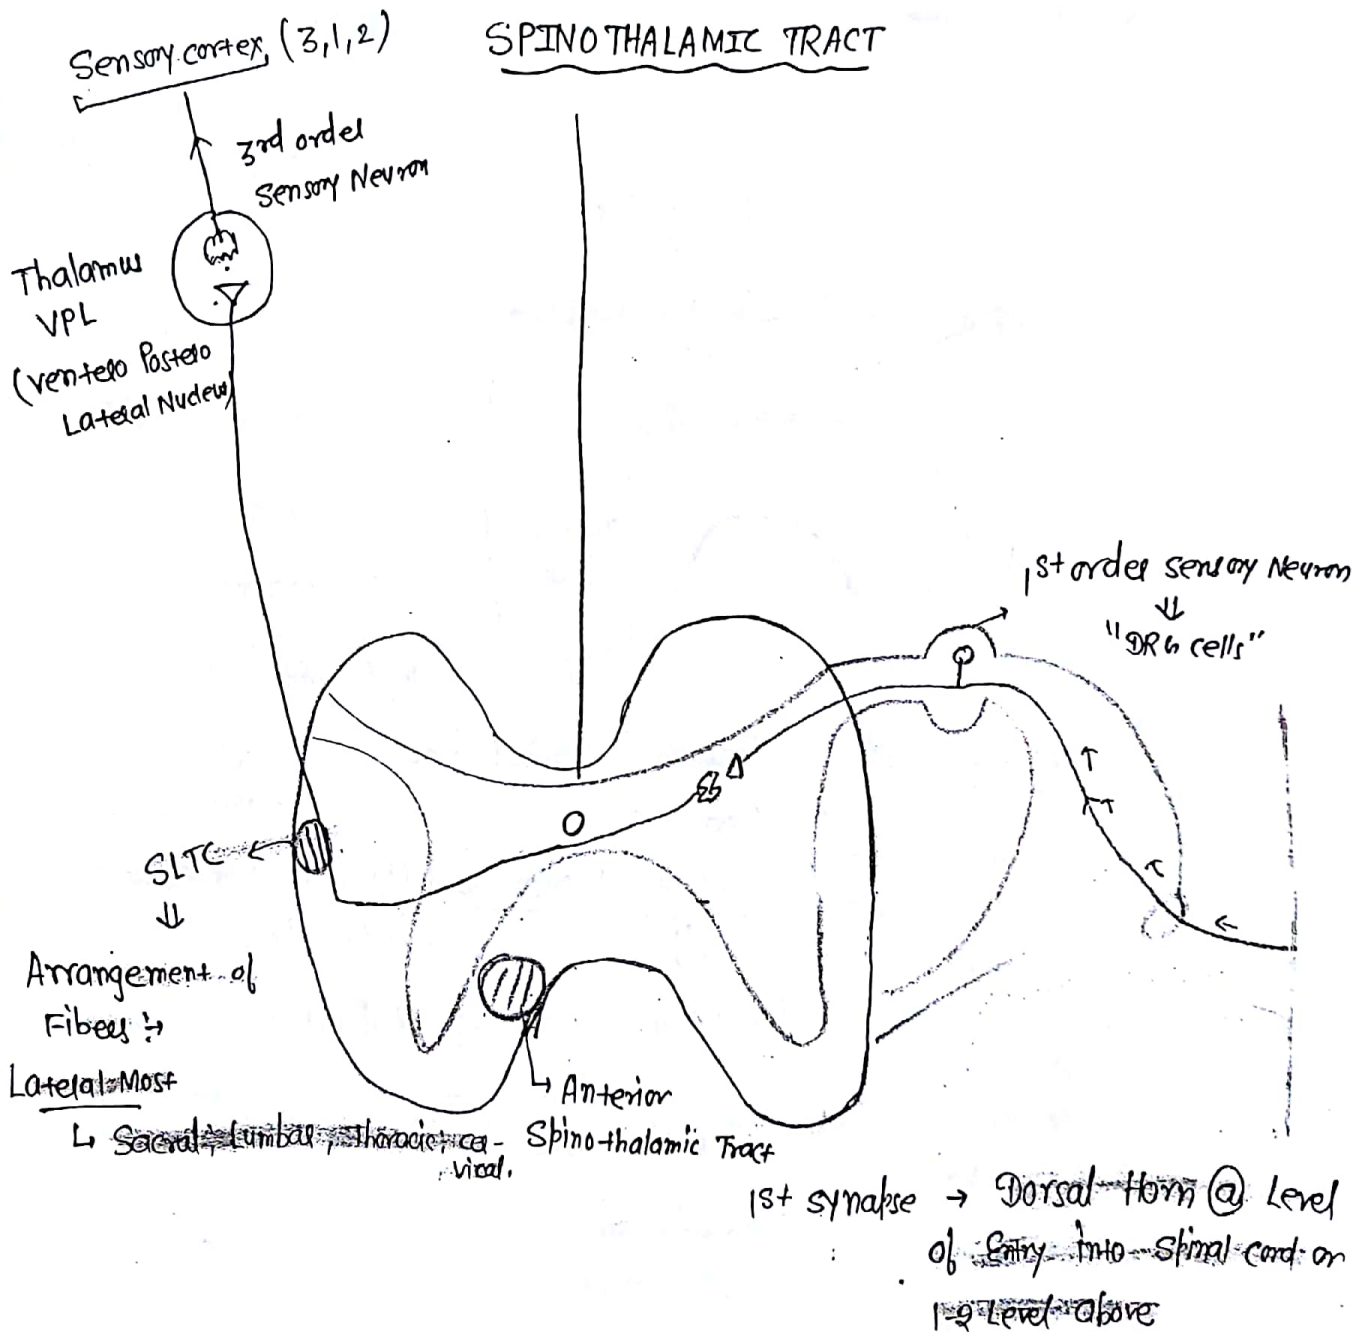 SPINOTHALAMIC TRACT
Sensory cortex, (3,1,2)
3rd order
Sensory Neuron
Thalamus
VPL
(Ventero Postero
Lateral Nucleus)
1st order sensory Neuron
⇓
"DRG cells"
SLTC ←
⇓
Arrangement of
Fibers :→
Lateral Most
↳ Sacral, Lumbar, Thoracic, ce-
vical.
↳ Anterior
Spinothalamic Tract
1st synapse → Dorsal Horn @ Level
of Entry into Spinal cord or
1-2 Level above